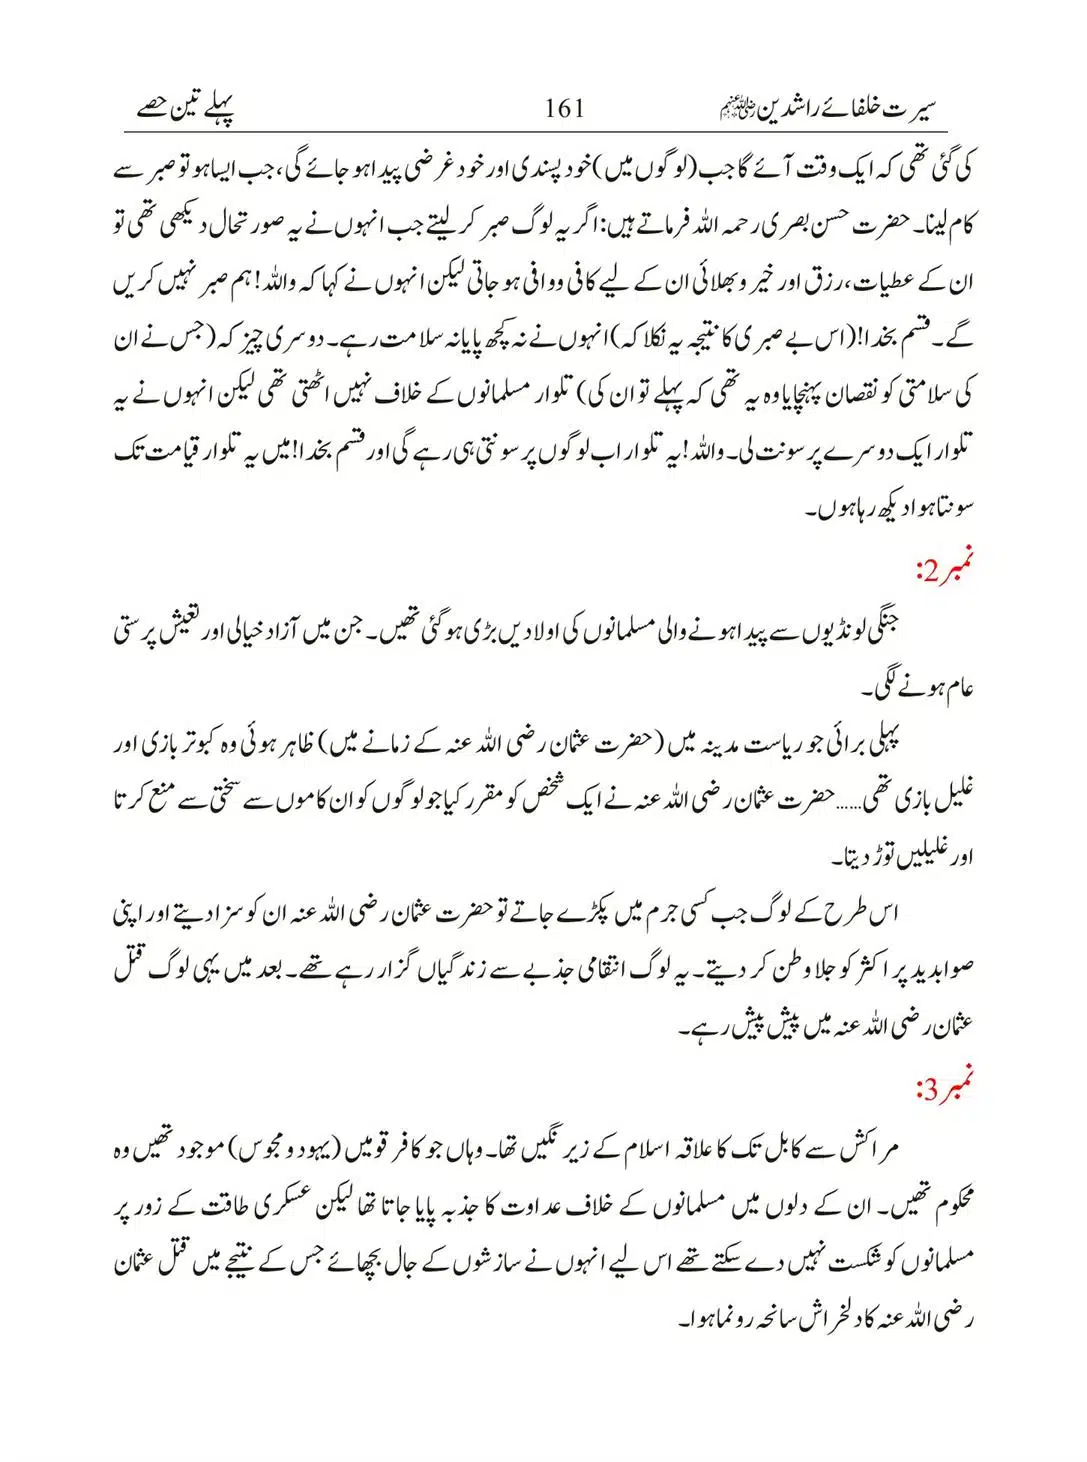 سیرت خلفائے راشدین رضی اللہ عنہم 161 پہلے تین حصے
کی گئی تھی کہ ایک وقت آئے گا جب (لوگوں میں) خود پسندی اور خود غرضی پیدا ہو جائے گی، جب ایسا ہو تو صبر سے
کام لینا۔ حضرت حسن بصری رحمہ اللہ فرماتے ہیں: اگر یہ لوگ صبر کر لیتے جب انہوں نے یہ صورتحال دیکھی تھی تو
ان کے عطیات، رزق اور خیر و بھلائی ان کے لیے کافی و وافی ہو جاتی لیکن انہوں نے کہا کہ واللہ! ہم صبر نہیں کریں
گے۔ قسم بخدا! (اس بے صبری کا نتیجہ یہ نکلا کہ) انہوں نے نہ کچھ پایا نہ سلامت رہے۔ دوسری چیز کہ (جس نے ان
کی سلامتی کو نقصان پہنچایا وہ یہ تھی کہ پہلے تو ان کی) تلوار مسلمانوں کے خلاف نہیں اٹھتی تھی لیکن انہوں نے یہ
تلوار ایک دوسرے پر سونت لی۔ واللہ! یہ تلوار اب لوگوں پر سونتی ہی رہے گی اور قسم بخدا! میں یہ تلوار قیامت تک
سونتا ہوا دیکھ رہا ہوں۔
نمبر 2:
جنگی لونڈیوں سے پیدا ہونے والی مسلمانوں کی اولادیں بڑی ہو گئی تھیں۔ جن میں آزاد خیالی اور تعیش پرستی
عام ہونے لگی۔
پہلی برائی جو ریاست مدینہ میں (حضرت عثمان رضی اللہ عنہ کے زمانے میں) ظاہر ہوئی وہ کبوتر بازی اور
غلیل بازی تھی...... حضرت عثمان رضی اللہ عنہ نے ایک شخص کو مقرر کیا جو لوگوں کو ان کاموں سے سختی سے منع کرتا
اور غلیلیں توڑ دیتا۔
اس طرح کے لوگ جب کسی جرم میں پکڑے جاتے تو حضرت عثمان رضی اللہ عنہ ان کو سزا دیتے اور اپنی
صوابدید پر اکثر کو جلا وطن کر دیتے۔ یہ لوگ انتقامی جذبے سے زندگیاں گزار رہے تھے۔ بعد میں یہی لوگ قتل
عثمان رضی اللہ عنہ میں پیش پیش رہے۔
نمبر 3:
مراکش سے کابل تک کا علاقہ اسلام کے زیر نگیں تھا۔ وہاں جو کافر قومیں (یہود و مجوس) موجود تھیں وہ
محکوم تھیں۔ ان کے دلوں میں مسلمانوں کے خلاف عداوت کا جذبہ پایا جاتا تھا لیکن عسکری طاقت کے زور پر
مسلمانوں کو شکست نہیں دے سکتے تھے اس لیے انہوں نے سازشوں کے جال بچھائے جس کے نتیجے میں قتل عثمان
رضی اللہ عنہ کا دلخراش سانحہ رونما ہوا۔